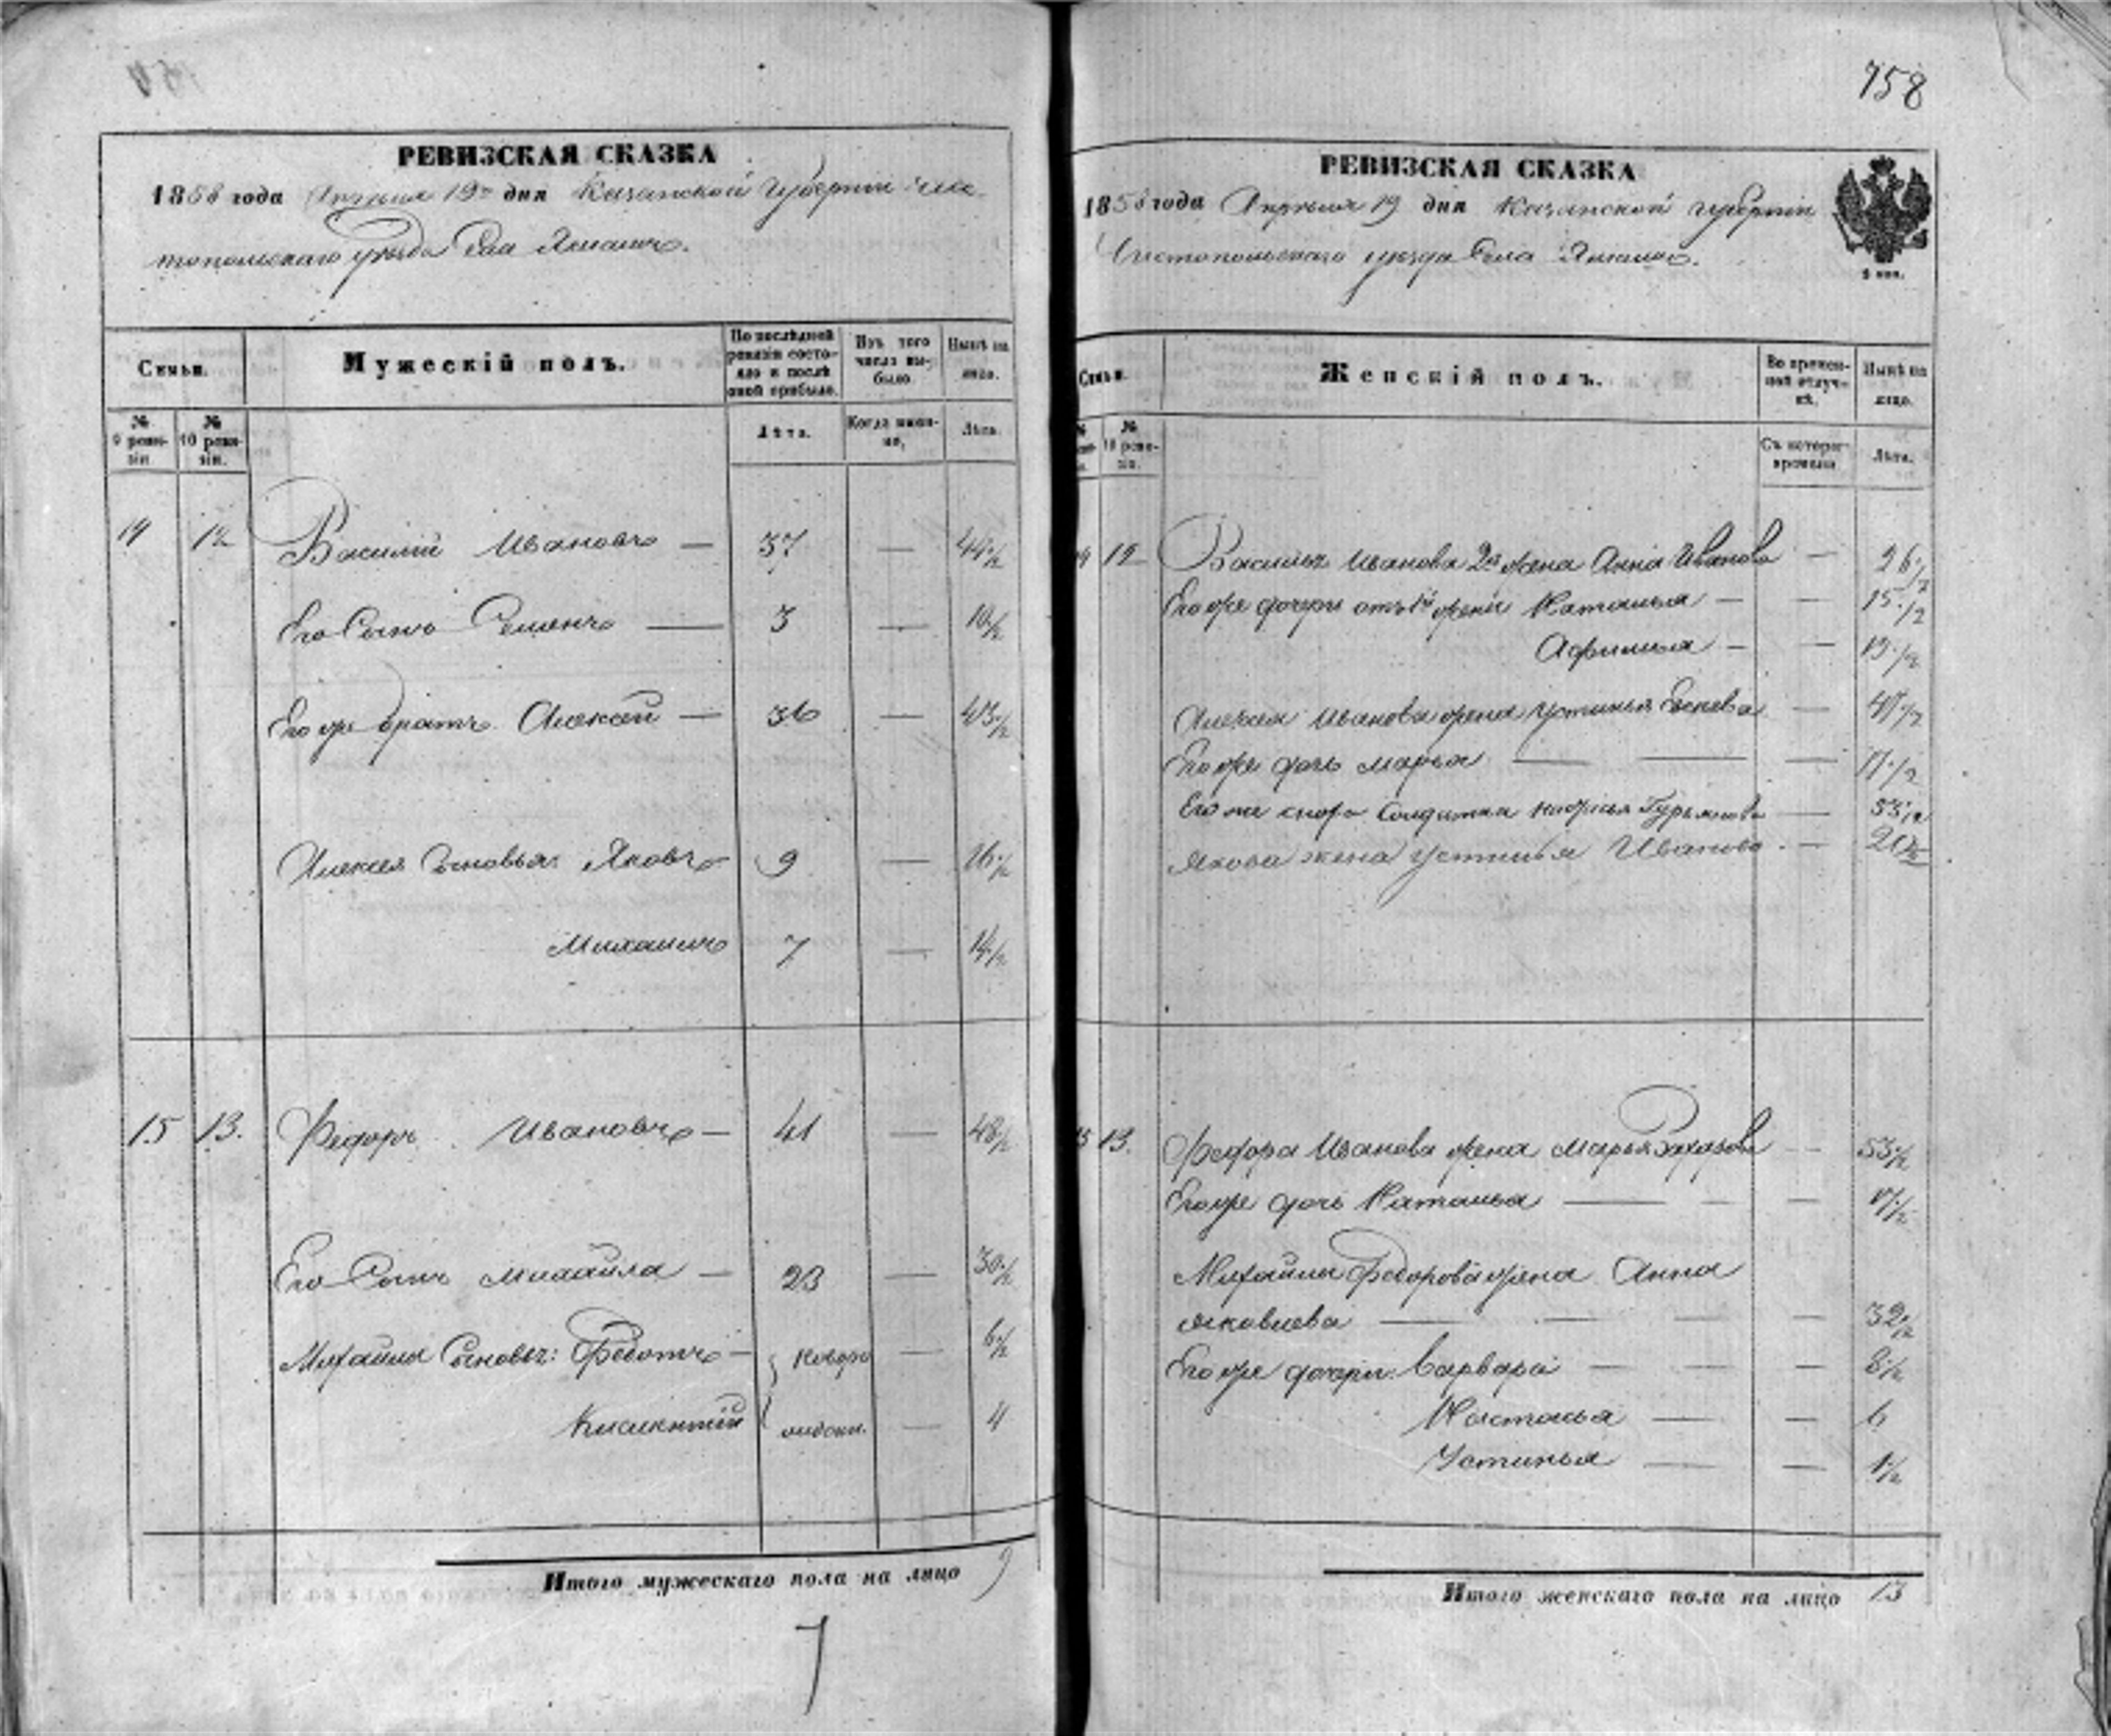 758
РЕВИЗСКАЯ СКАЗКА
1858 года Апрѣля 19го дня Казанской Губерніи Чис-
топольскаго уѣзда Села
Семьи.
Мужескій полъ.
По послѣдней ревизіи состо-яло и послѣ оной прибыло.
Изъ того числа вы-было.
Нынѣ на лицо.
№ 9 реви-зіи.
№ 10 реви-зіи.
Лѣта.
Когда имен-но,
Лѣта.
14 12 Василій Ивановъ — 37 — 44½
Его Сынъ Семенъ — 3 — 10½
Его же братъ Алексѣй — 36 — 43½
Алексѣя Сыновья: Яковъ 9 — 16½
Михаилъ 7 — 14½
15 13. Федоръ Ивановъ — 41 — 48½
Его Сынъ Михайла — 23 — 30½
Михайлы Сыновья: Федотъ — новоро — 6½
Килентій — 4
Итого мужескаго пола на лицо 9
7
РЕВИЗСКАЯ СКАЗКА
1858 года Апрѣля 19 дня Казанской Губерніи
Чистопольскаго уѣзда Села
Семьи.
Женскій полъ.
Во времен-ной отлуч-кѣ.
Нынѣ на лицо.
№ 10 реви-зіи.
Съ котораго времени
Лѣта.
12 Василья Иванова 2я жена Анна Иванова — 26½
Его же дочери отъ 1й жены Наталья — — 15½
Афимья — —
Алексѣя Иванова жена Устинья —
Его же дочь Марья — — — 17½
Его же Солдатка Гурьянова — 33½
Якова жена Устинья Иванова —
13. Федора Иванова жена Марья Захарова — 53½
Его же дочь Наталья — — — 17½
Михайлы Федорова жена Анна
Яковлева — — — — 32½
Его же дочери: Варвара — — — 8½
Настасья — — 6
Устинья — — 1½
Итого женскаго пола на лицо 13